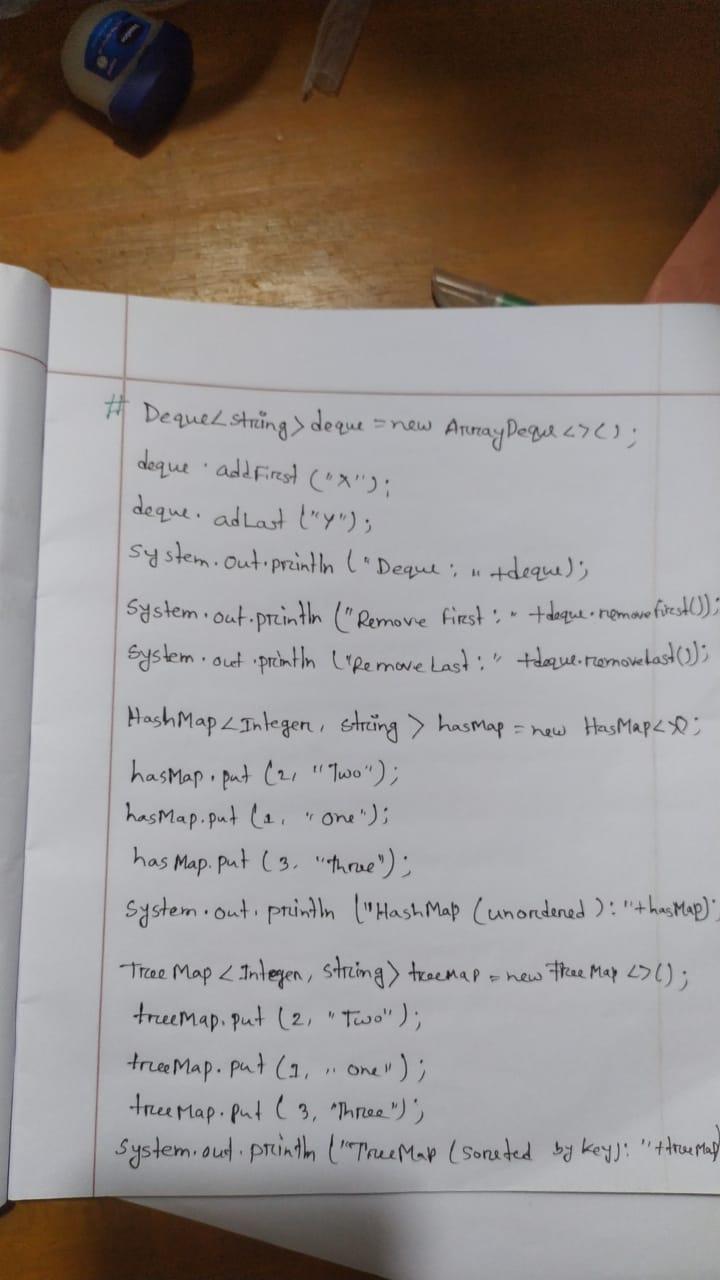 # Deque<string> deque = new ArrayDeque<>();
deque.addFirst ("X");
deque.adLast ("Y");
System.out.println ("Deque: " +deque);
System.out.println ("Remove first: " +deque.removefirst());
System.out.println ("Remove Last: " +deque.removeLast());
HashMap<Integer, string> hasMap = new HasMap<>();
hasMap.put (2, "Two");
hasMap.put (1, "one");
hasMap.put (3, "three");
System.out.println ("HashMap (unordered): "+hasMap);
TreeMap<Integer, string> treeMap = new TreeMap<>();
treeMap.put (2, "Two");
treeMap.put (1, "one");
treeMap.put (3, "Three");
System.out.println ("TreeMap (soreted by key): "+treeMap)